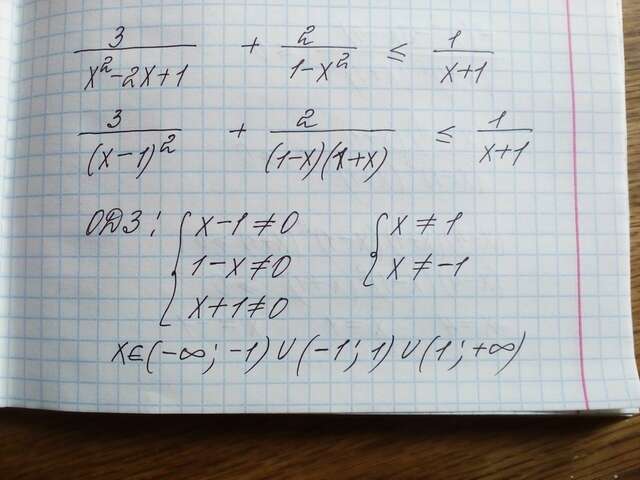 3/(x²-2x+1) + 2/(1-x²) ≤ 1/(x+1)
3/(x-1)² + 2/((1-x)(1+x)) ≤ 1/(x+1)
ОДЗ: { x-1≠0 { x≠1
1-x≠0 x≠-1
x+1≠0
x∈(-∞; -1)∪(-1; 1)∪(1; +∞)